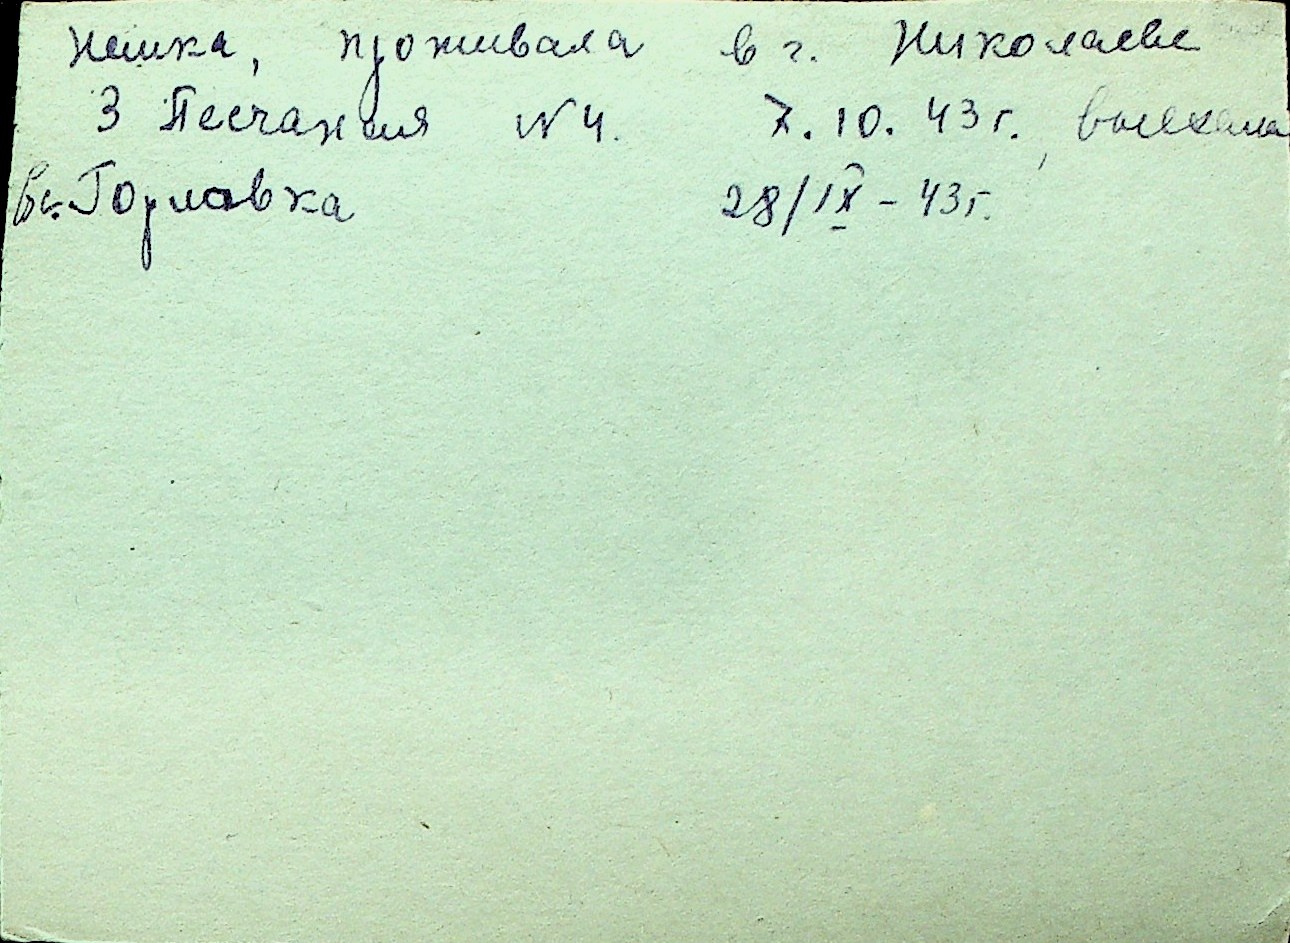 немка, проживала в г. Николаеве
3 Песчаная №4. 7.10.43г. выехала
в с. Горловка 28/IX-43г.